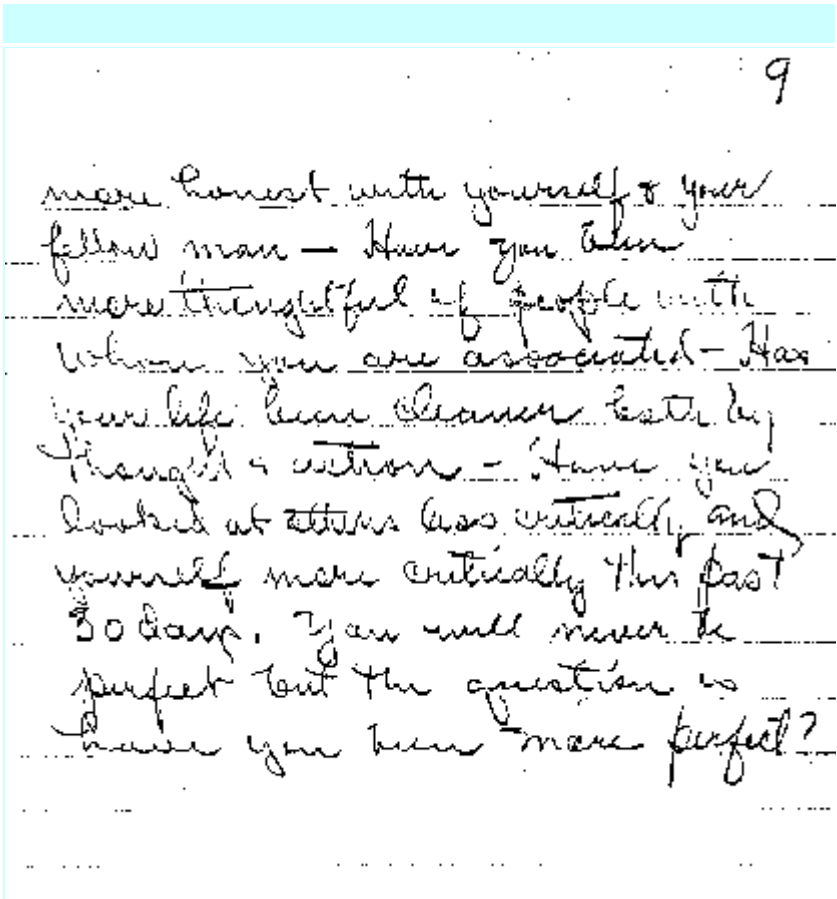 9
more honest with yourself & your
fellow man — Have you been
more thoughtful of people with
whom you are associated — Has
your life been cleaner both by
thought & action — Have you
looked at others less critically and
yourself more critically this past
30 days. You will never be
perfect but the question is
have you been more perfect?